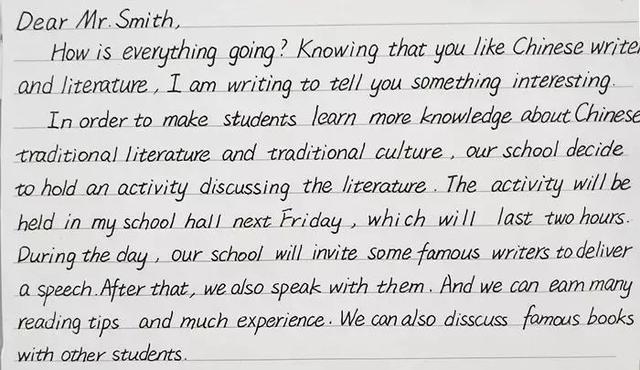 Dear Mr. Smith,
How is everything going? Knowing that you like Chinese write
and literature, I am writing to tell you something interesting.
In order to make students learn more knowledge about Chinese
traditional literature and traditional culture, our school decide
to hold an activity discussing the literature. The activity will be
held in my school hall next Friday, which will last two hours.
During the day, our school will invite some famous writers to deliver
a speech. After that, we also speak with them. And we can earn many
reading tips and much experience. We can also disscuss famous books
with other students.